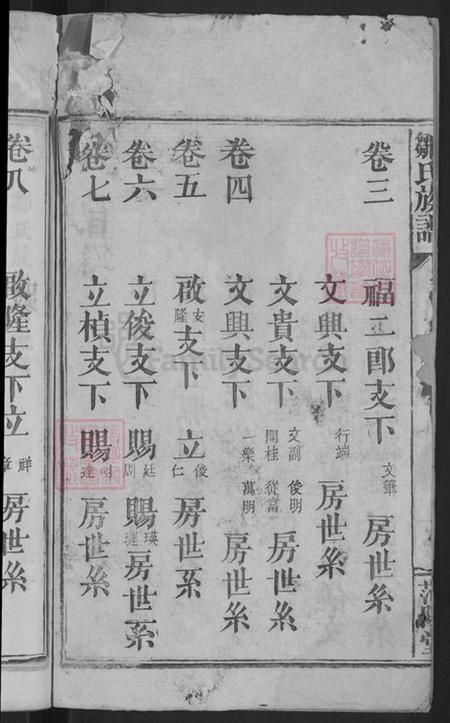 鄒氏族譜
卷三
福二郎支下 文筆 房世系
文興支下 行端 房世系
文貴支下 文副 俊明 開桂 從富 房世系
卷四
文興支下 一樂 萬明 房世系
卷五
啟安隆支下 立俊仁 房世系
卷六
立俊支下 賜廷周 賜瑛璉 房世系
卷七
立楨支下 賜明達 房世系
卷八
啟隆支下立祥 房世系
FamilySearch